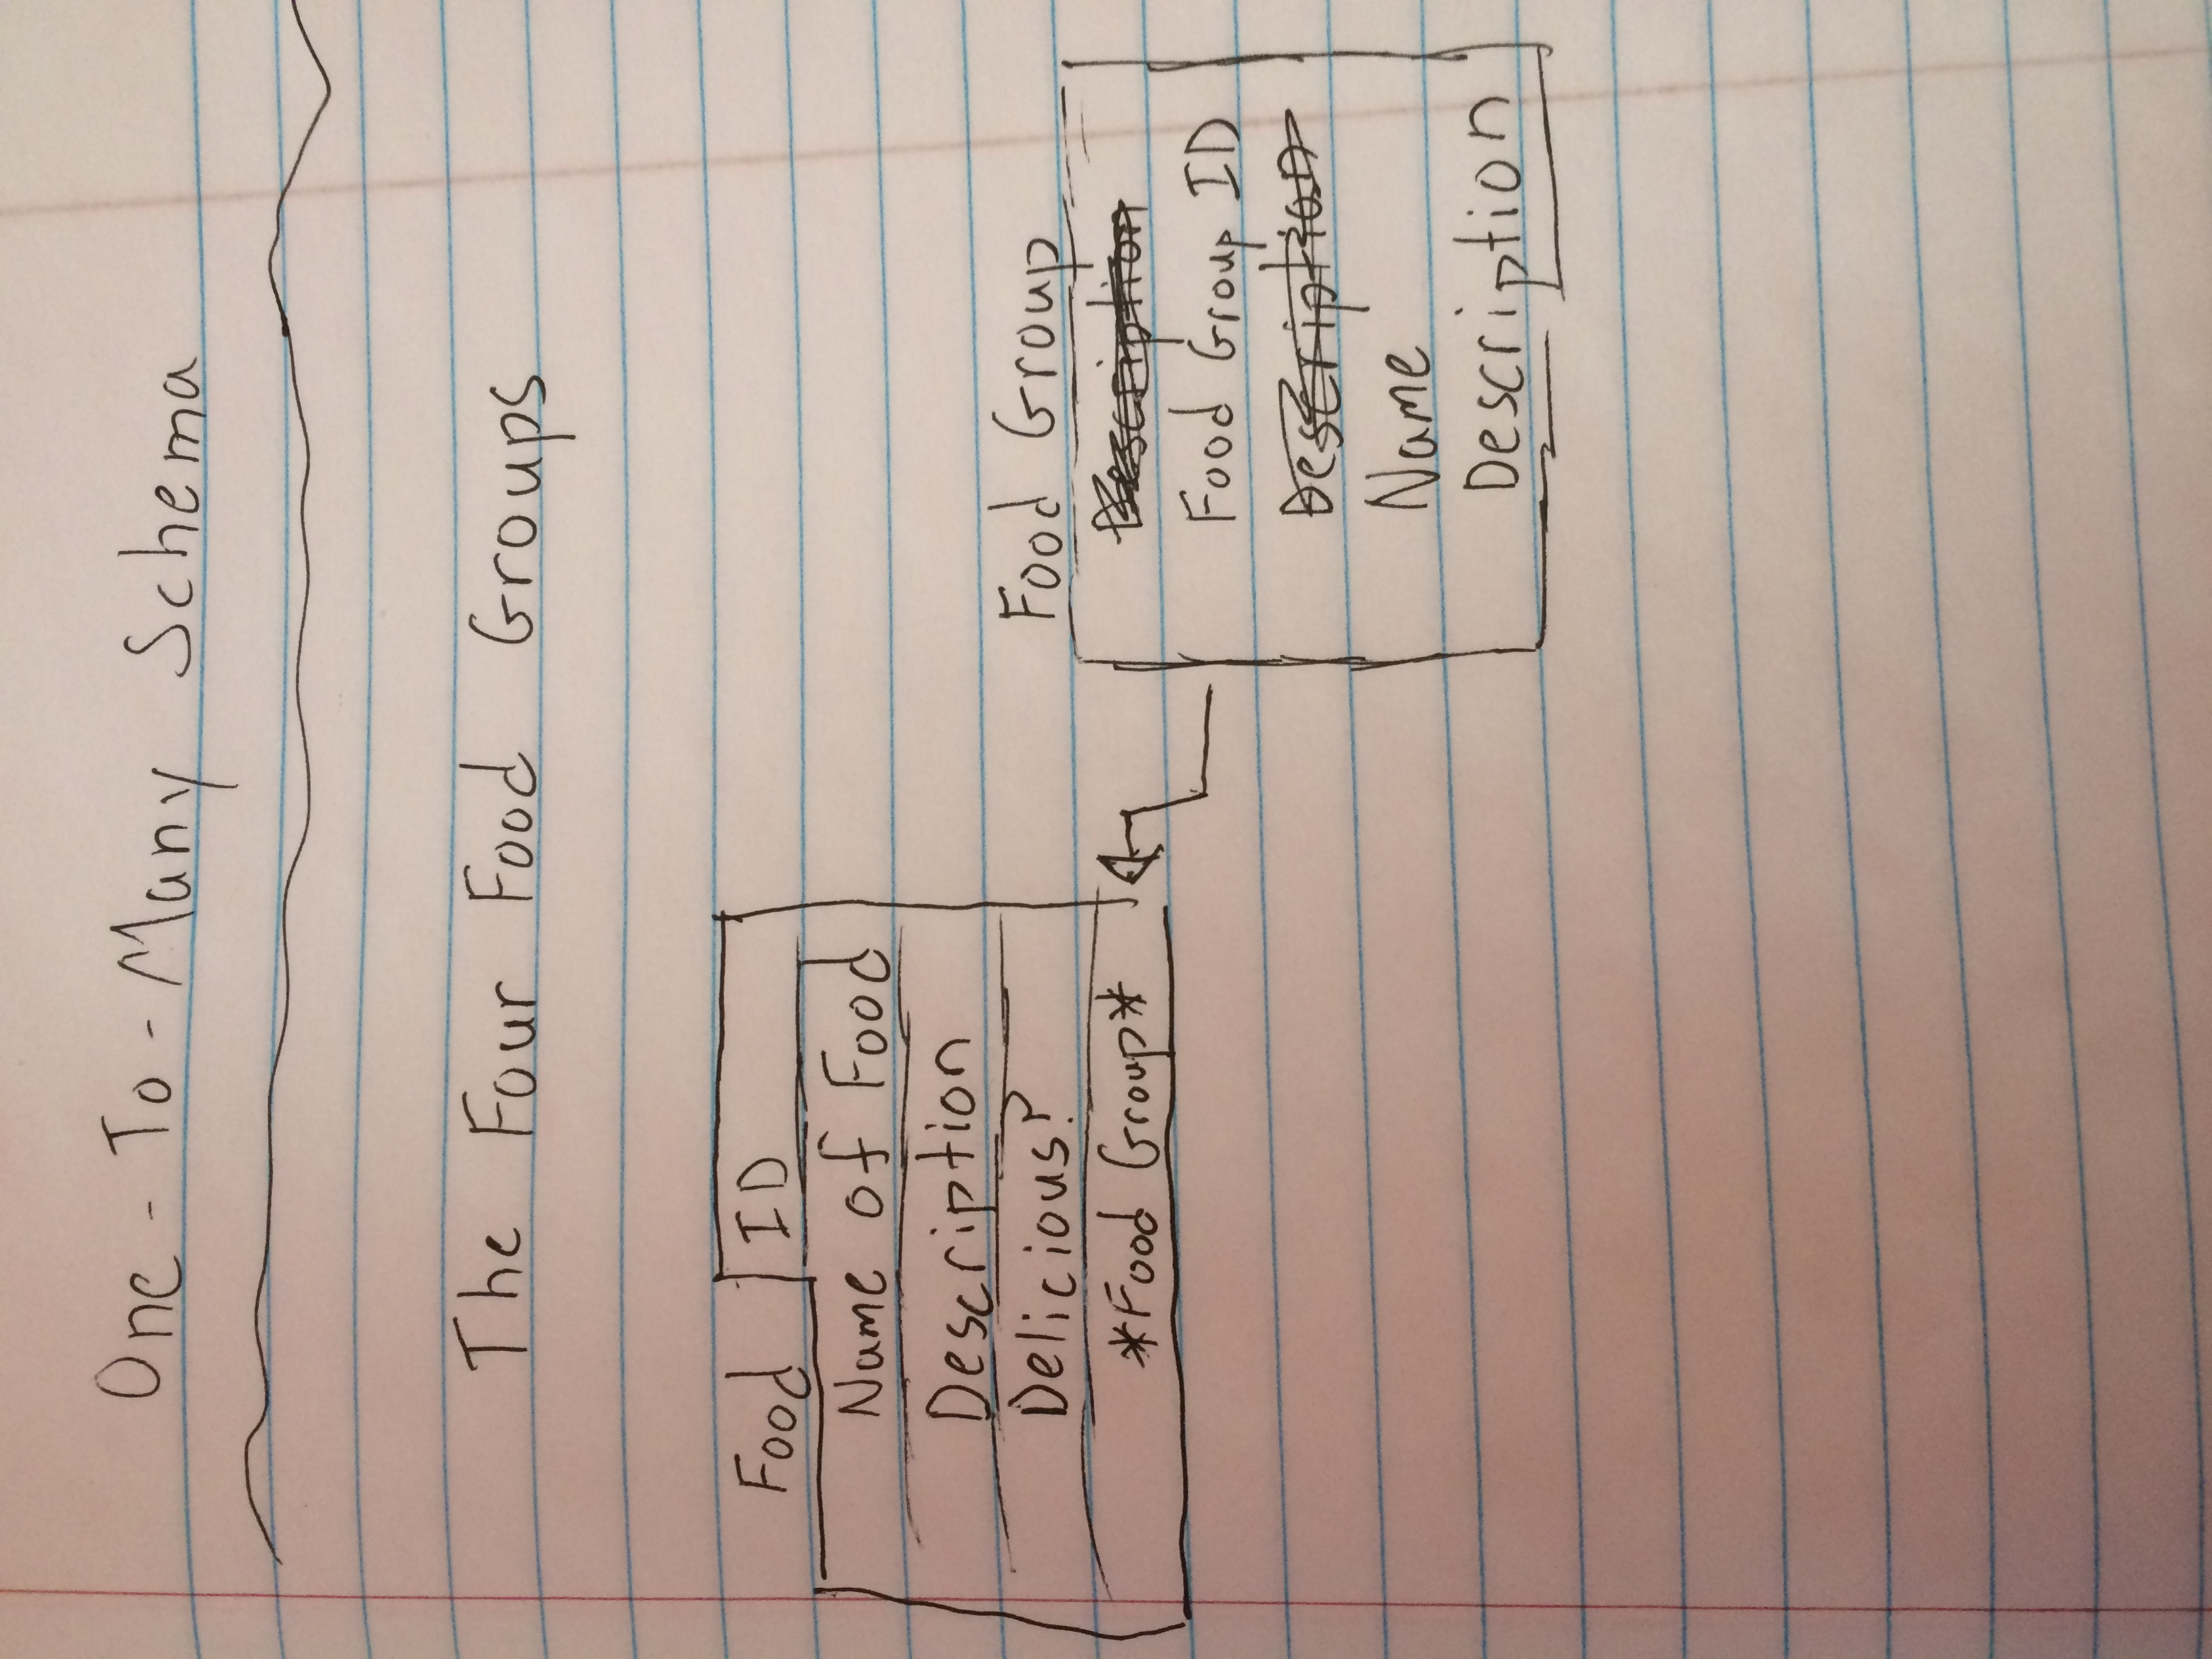 One-To-Many Schema
The Four Food Groups
Food ID
Name of Food
Description
Delicious?
*Food Group*
Food Group
Description
Food Group ID
Description
Name
Description